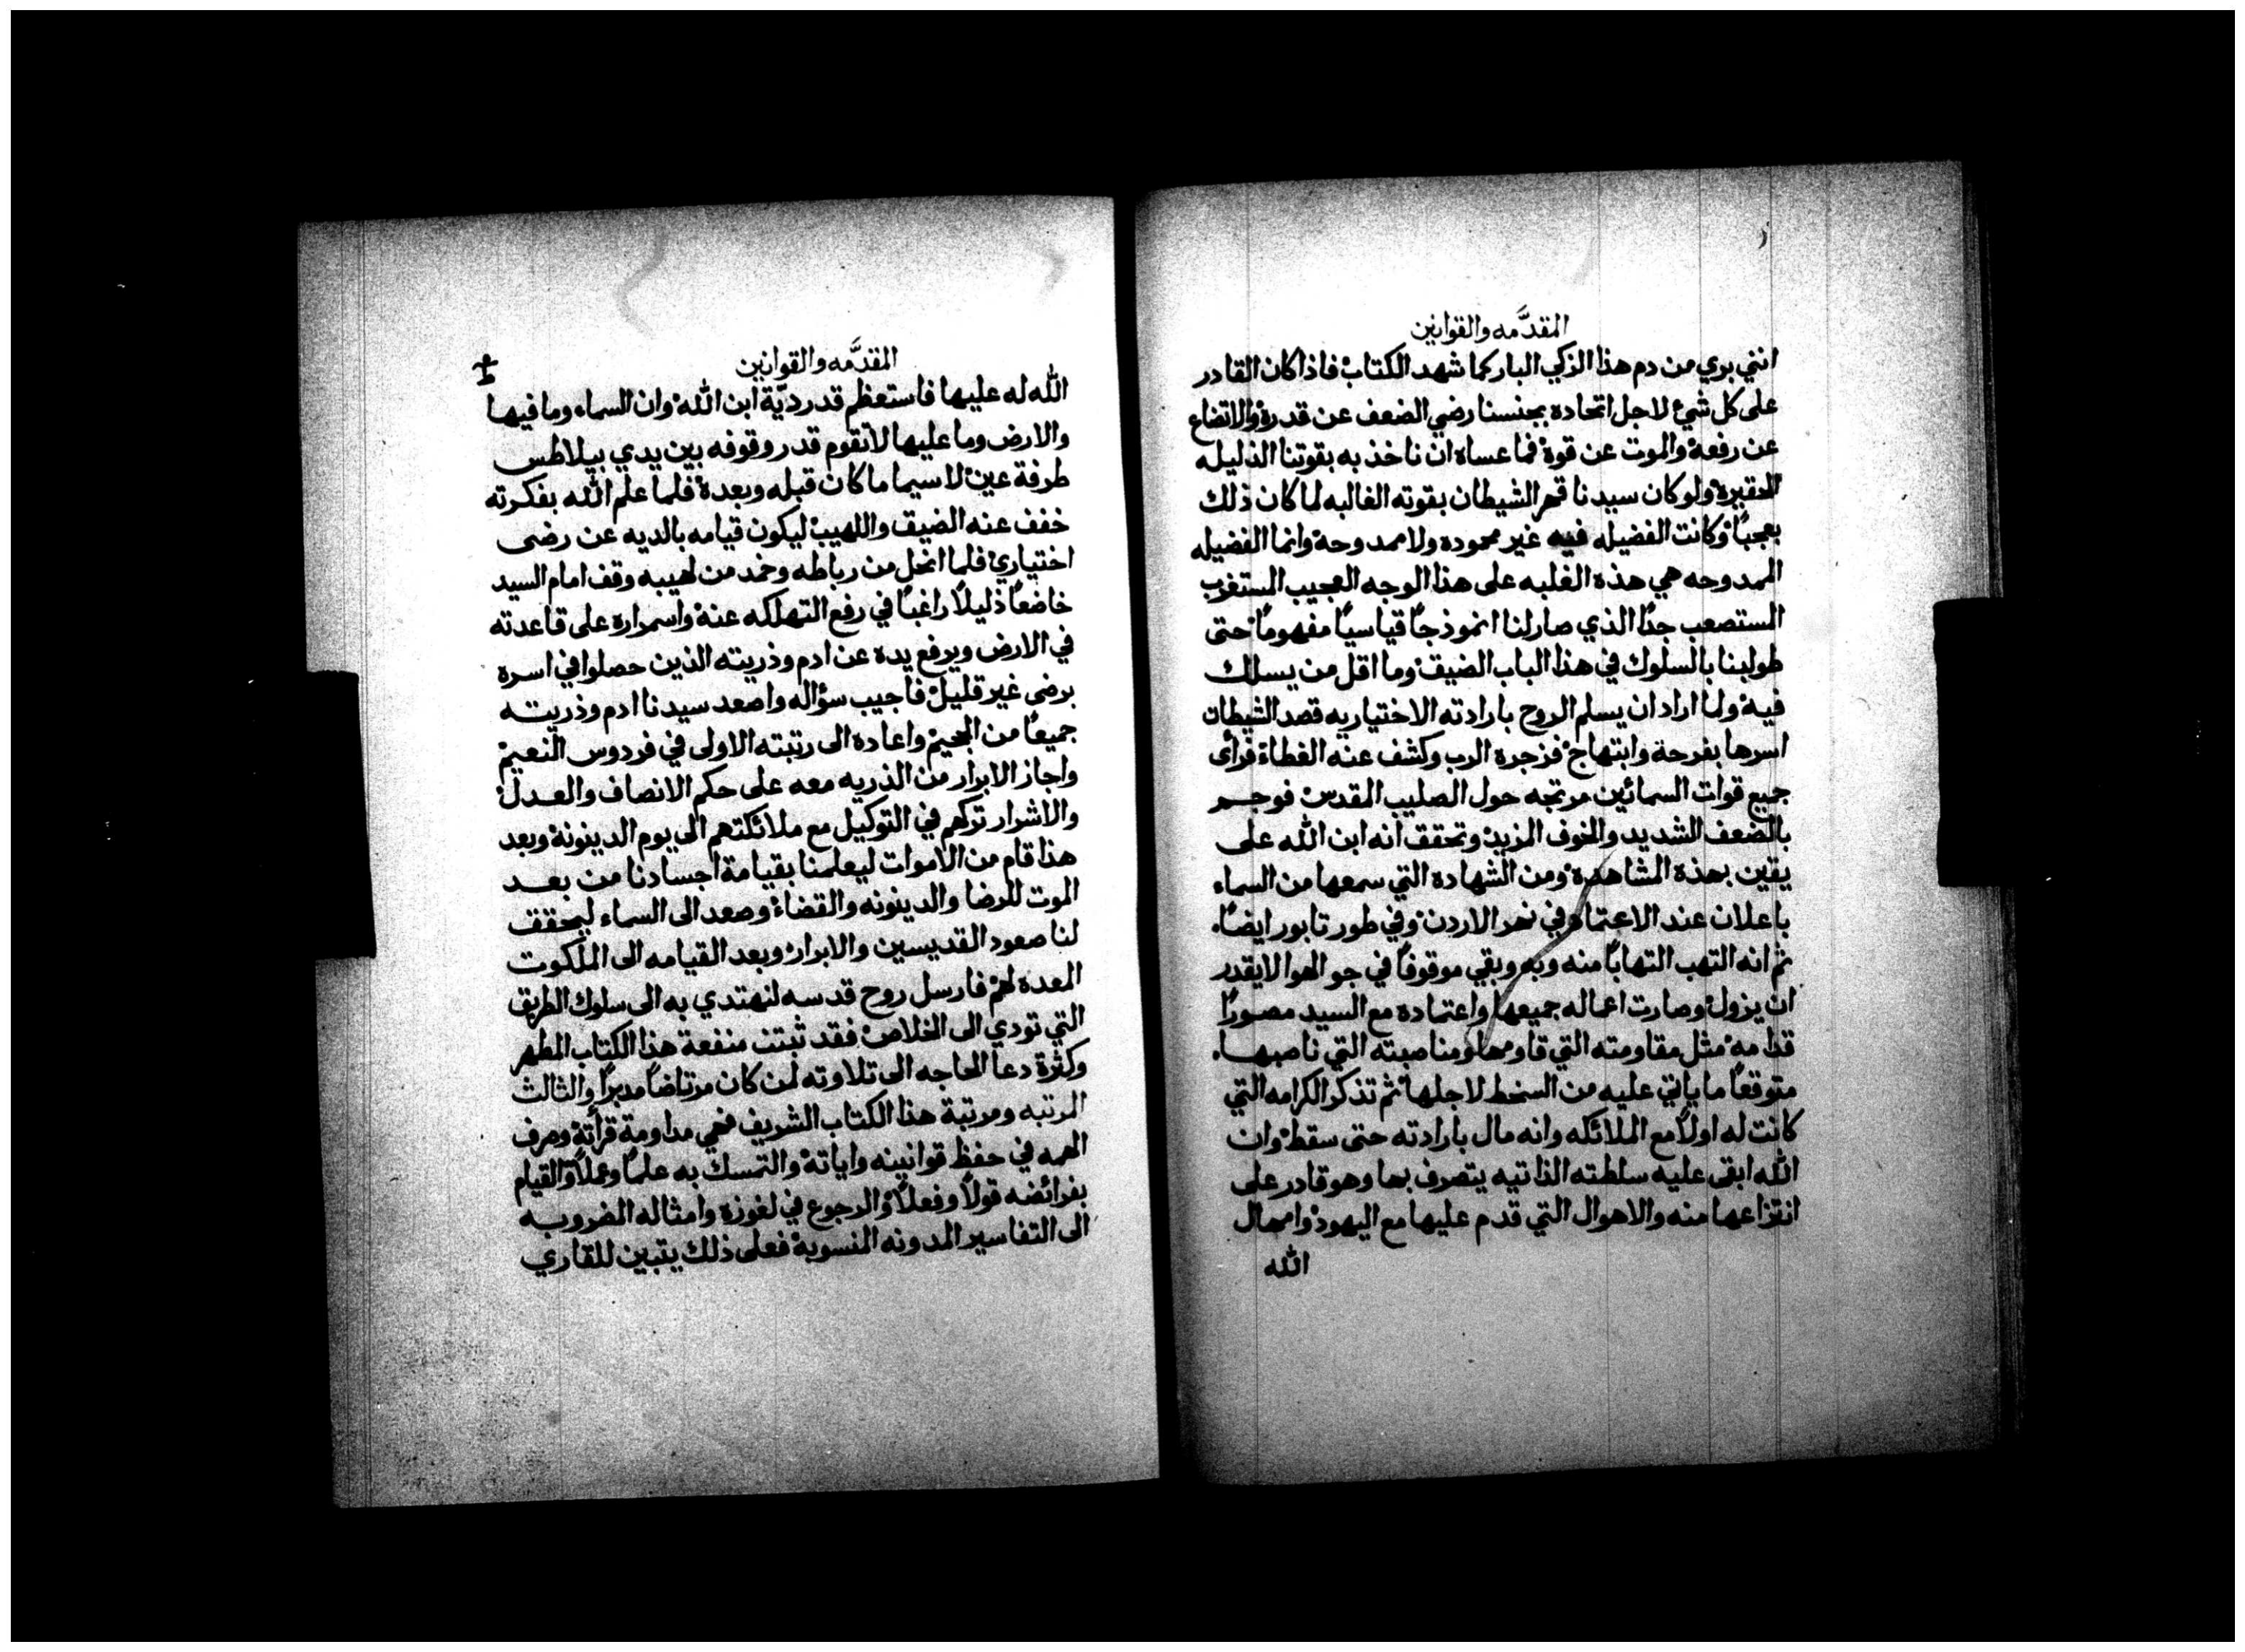 المقدَّمه والقوانين
انني بري من دم هذا الزكي البار كما شهد الكتاب فاذا كان القادر
على كل شيء لاجل اتحاده بجنسنا رضي الضعف عن قدرة والاتضاع
عن رفعة والموت عن قوة فما عساه ان ناخذ به بقوتنا الذليله
الحقيرة ولو كان سيدنا قهر الشيطان بقوته الغالبه لما كان ذلك
بعجبًا وكانت الفضيله فيه غير محموده ولا ممدوحة وانما الفضيله
الممدوحه هي هذه الغلبه على هذا الوجه العجيب المستغرب
المستصعب جدًا الذي صار لنا انموذجًا قياسيًا مفهومًا حتى
طولبنا بالسلوك في هذا الباب الضيق وما اقل من يسلك
فيه ولما اراد ان يسلم الروح بارادته الاختياريه قصد الشيطان
اسرها بفرحة وابتهاج فزجره الرب وكشف عنه الغطاء فراى
جميع قوات السمائين مرتجه حول الصليب المقدس فوجم
بالضعف الشديد والخوف المزيد وتحقق انه ابن الله على
يقين بهذه المشاهدة ومن الشهاده التي سمعها من السماء
باعلان عند الاعتماد في نهر الاردن وفي طور تابور ايضًا.
ثم انه التهب التهابًا منه وبه وبقي موقوفًا في جو الهوا لايقدر
ان يزول وصارت اعماله جميعها واعتماده مع السيد مصورًا
قدامه مثل مقاومته التي قاومها ومناصبته التي ناصبها.
متوقعًا ما ياتي عليه من السخط لاجلها ثم تذكر الكرامه التي
كانت له اولاً مع الملائكه وانه مال بارادته حتى سقط وان
الله ابقى عليه سلطته الذاتيه يتصرف بها وهو قادر على
انتزاعها منه والاهوال التي قدم عليها مع اليهود وامهال
الله
المقدَّمه والقوانين
الله له عليها فاستعظم قدر ديّة ابن الله وان السماء وما فيها
والارض وما عليها لاتقوم قدر وقوفه بين يدي بيلاطس
طرفة عين لاسيما ما كان قبله وبعدة فلما علم الله بفكرته
خفف عنه الضيق واللهيب ليكون قيامه بالديه عن رضى
اختياري فلما انحل من رباطه وخمد من لهيبه وقف امام السيد
خاضعًا ذليلاً راغبًا في رفع التهلكه عنه واسمراره على قاعدته
في الارض ويرفع يده عن ادم وذريته الذين حصلوا في اسره
برضى غير قليل فاجيب سؤاله واصعد سيدنا ادم وذريته
جميعًا من الجحيم واعاده الى رتبته الاولى في فردوس النعيم
واجاز الابرار من الذريه معه على حكم الانصاف والعدل
والاشرار تركهم في التوكيل مع ملائكتهم الى يوم الدينونة وبعد
هذا قام من الاموات ليعلمنا بقيامة اجسادنا من بعد
الموت للرضا والدينونه والقضاء وصعد الى السماء ليحقق
لنا صعود القديسين والابرار وبعد القيامه الى الملكوت
المعده لهم فارسل روح قدسه لنهتدي به الى سلوك الطريق
التي تودي الى الخلاص فقد ثبتت منفعة هذا الكتاب المطهر
وكثرة دعا الحاجه الى تلاوته لمن كان مرتاضًا مدبرًا والثالث
المرتبه ومرتبة هذا الكتاب الشريف فهي مداومة قراته وصرف
الهمه في حفظ قوانينه واياته والتمسك به علمًا وعملاً والقيام
بفرائضه قولاً وفعلاً والرجوع في لغوزه وامثاله المضروبه
الى التفاسير المدونه المنسوبة فعلى ذلك يتبين للقاري